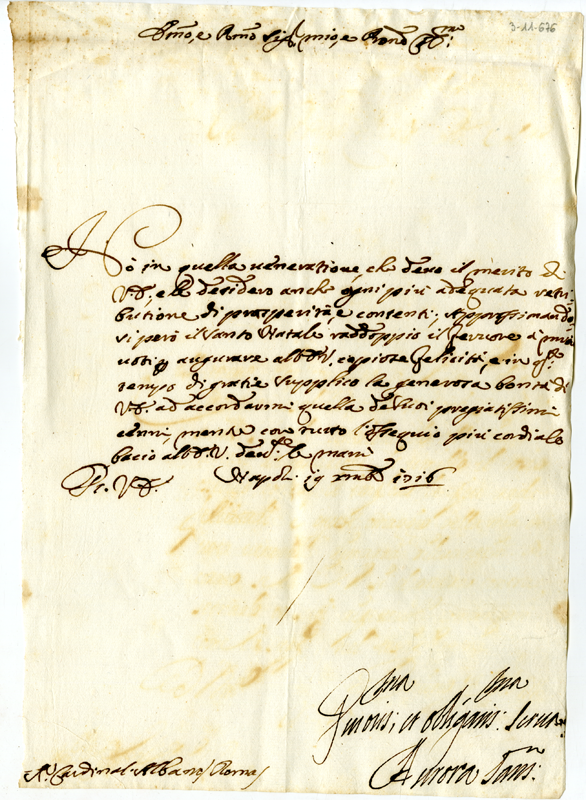 3-11-676
Emo, e Rmo Sigr mio, e Pron̄ Colmo
Hò in quella veneratione, che devo il merito di
V.E., e le desidero anche ogni più adequata retri-
butione di prosperità, e contenti; Approssimando-
si però il Santo Natale raddoppio il fervore à miei
voti p augurare all'E.V. copiose felicità, e in qto
tempo di gratie supplico la generosa bontà di
V.E. ad accordarmi quella de suoi pregiatissimi
cenni, mentre con tutto l'ossequio più cordiale
bacio all'E.V. le mani
Di V.E. Napoli 19 Xmbre 1716
ma ma
Divotis: et obligatis: Serva
Aurora San:
Sr Cardinal Albano Roma